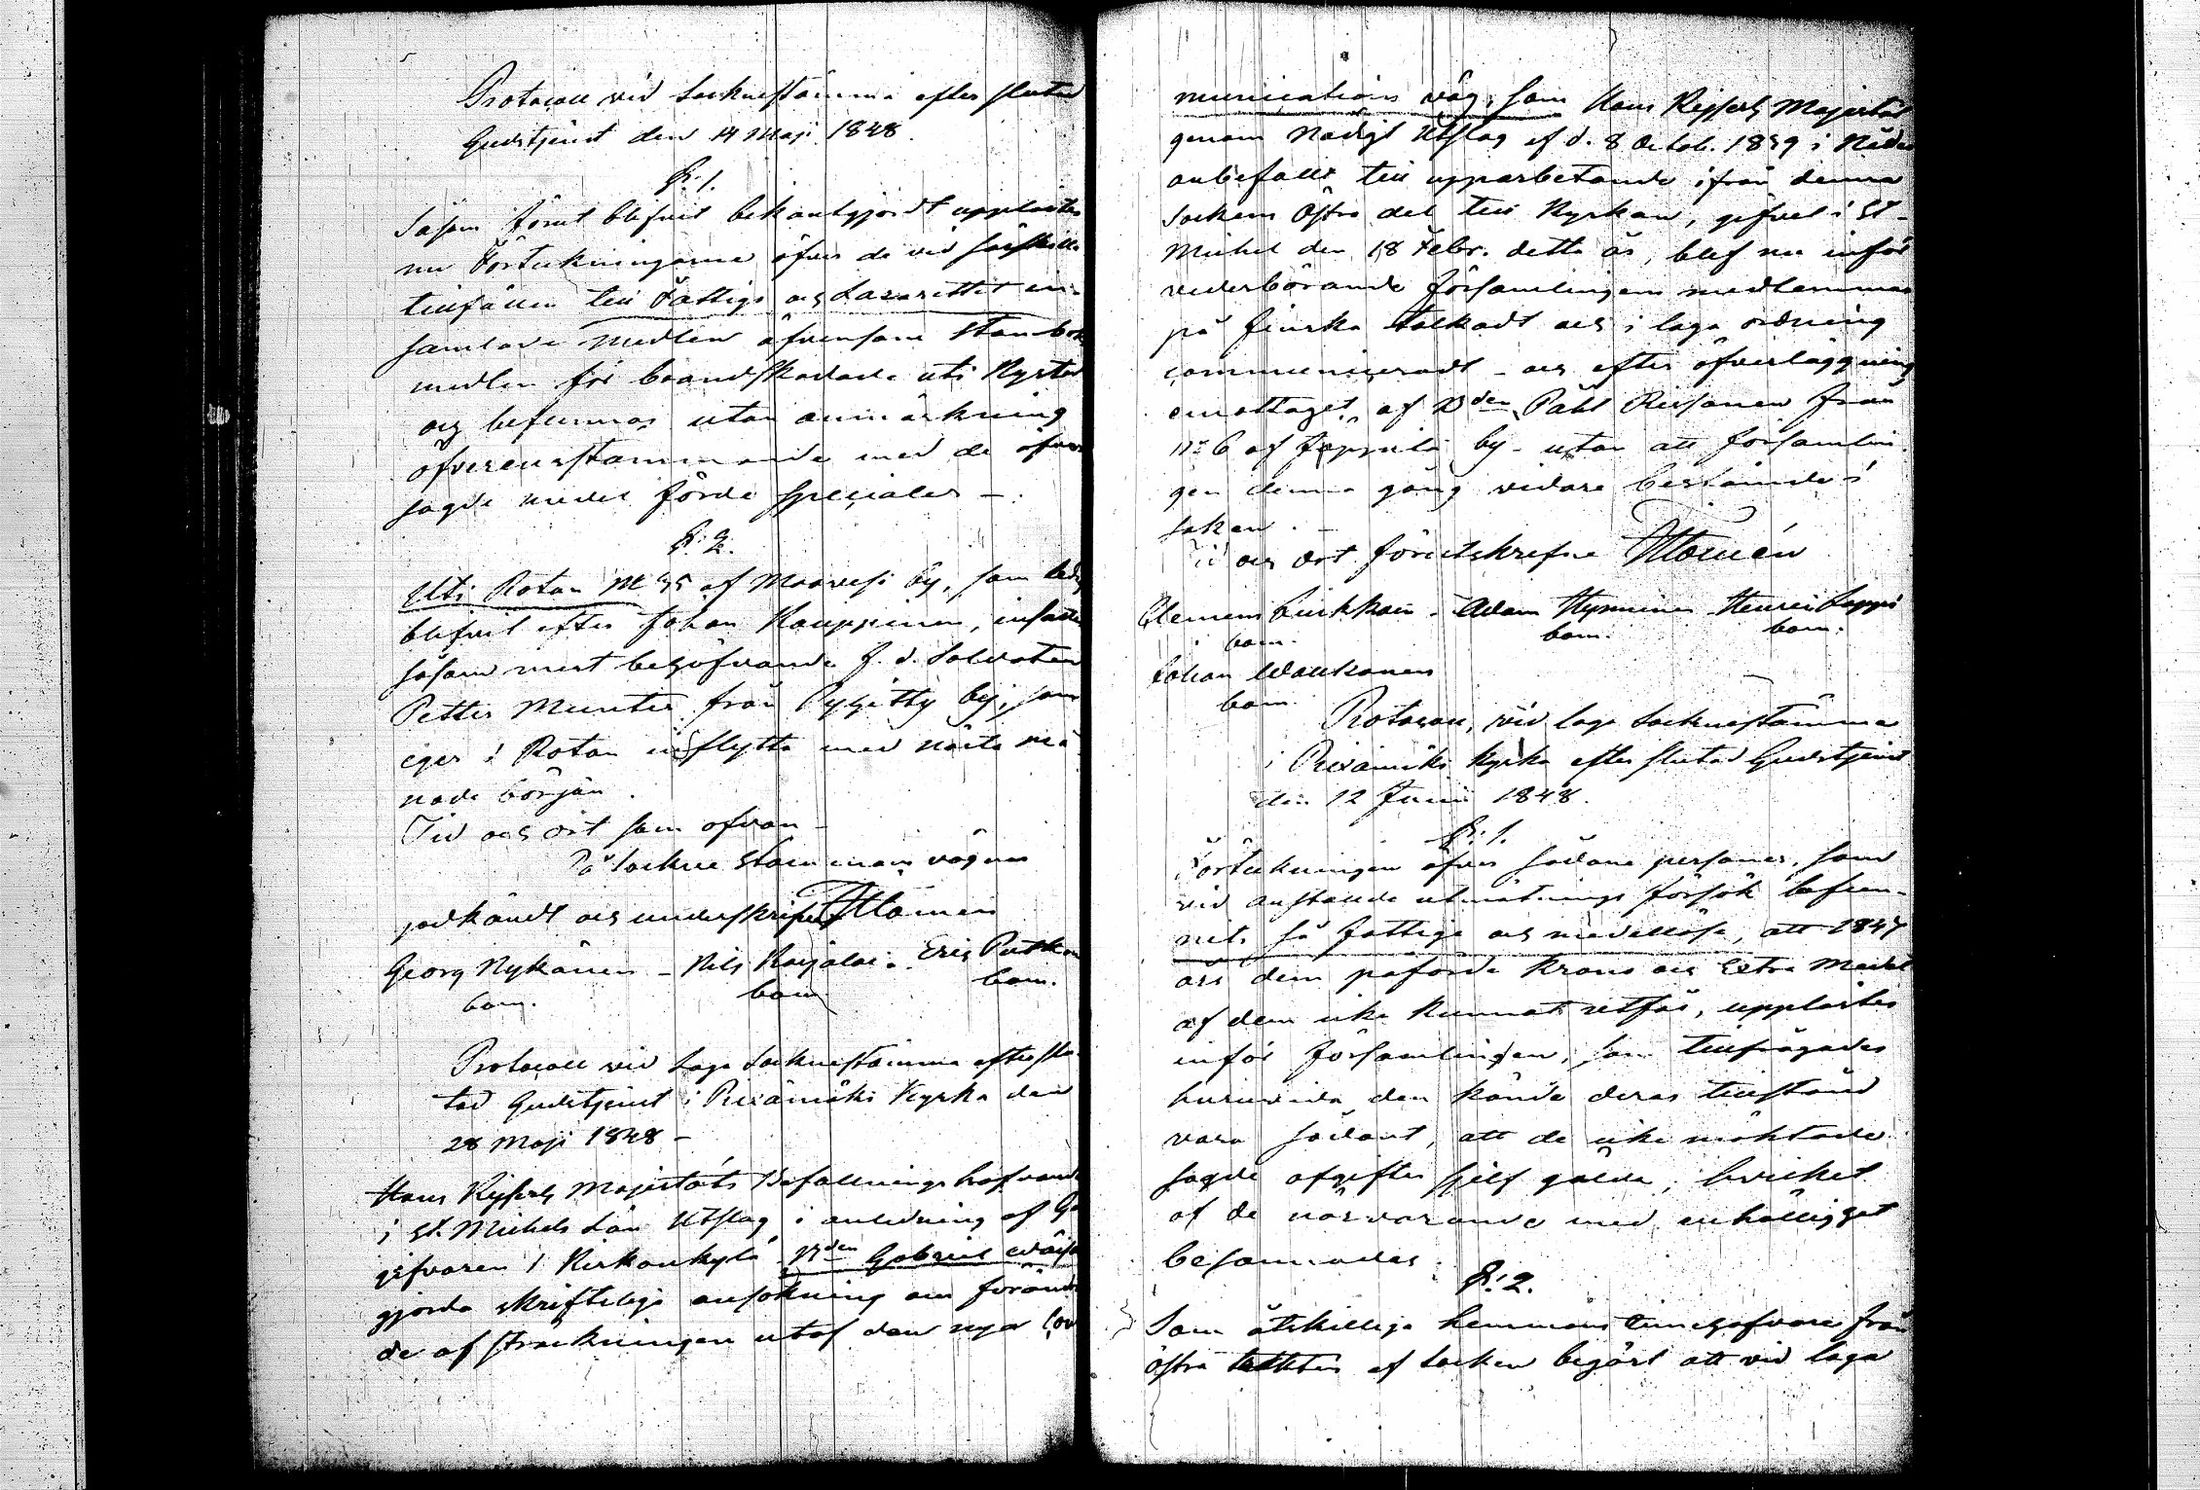 Protocoll vid Socknestämma efter slutad
Gudstjenst den 14 Maji 1848.
§. 1.
Såsom förut blifvit bekantgjordt upplästes
nu Förtekningarne öfver de vid särskilta
tillfällen till Fattige och Lazarettet in-
samlade medlen äfvensom Stambok
medlen för brandskadade uti Nystad
och befunnos utan anmärkning
öfverensstämmande med de öfver
sagde medel förde Specialer –
§. 2.
Uti Rotan № 35 af Maavesi by, som ledig
blifvit efter Johan Kauppinen, insattes
såsom mest behöfvande f. d. Soldaten
Petter Munter från Pyhitty by, som
eger i Rotan inflytta med nästa må
nads början.
Tid och ort som ofvan –
På Sockne Stammans vägnar
godkändt och underskrifvet
Georg Nykänen – Nils Karjalai. Eric Putkon
bom. bom bom.
Protocoll vid Laga Socknestämma efter slu-
tad Gudstjenst i Piexämäki Kyrka den
28 Maji 1848 –
Hans Kejserliga Majestäts Befallningshafvande
i St. Michels Län Utslag i anledning af Gä
gifvaren i Kirkonkylä Bden Gabriel
gjorda skriftliga ansökning om förändr
de af sträckningen utaf den nya Com
munications väg, som Hans Kejserl. Majestät
genom Nådigt Utslag af d. 8 Octob. 1839 i Nåder
anbefallt till upparbetande ifrån denna
Sockens Östra del till Kyrkan, gifvet i St.
Michel den 18 Febr. detta år, blef nu inför
vederbörande Församlingens medlemmar
på finska tolkadt och i laga ordning
communiceradt – och efter öfverläggning
emottaget af Bden Påhl Reisonen från
№ 6 af Jäppilä by – utan att församlin
gen denna gång vidare bestämde i
saken. –
Tid och Ort förutskrefne
Clemens – Adam Hynninen Henric Lappi
bom. bom. bom.
Johan Waukonen
bom.
Protocoll, vid laga Socknestämma
i Piexämäki Kyrka efter slutad Gudstjenst
den 12 Junii 1848.
§. 1.
Förtekningen öfver sådane personer, som
vid anstälde utmätnings försök befun-
nits så fattige och medellöse, att 1847
års dem påförde Krono och Extra Medel
af dem icke kunnat utfås, upplästes
inför Församlingen, som tillfrågades
huruvida den kände deras tillstånd
vara sådant, att de icke mäktade
sagde afgifter sjelf gälda, hvilket
af de närvarande med enhällighet
besannades.
§. 2.
Som åtskillige hemmans innehafvare från
östra trakten af Socken begärt att vid laga